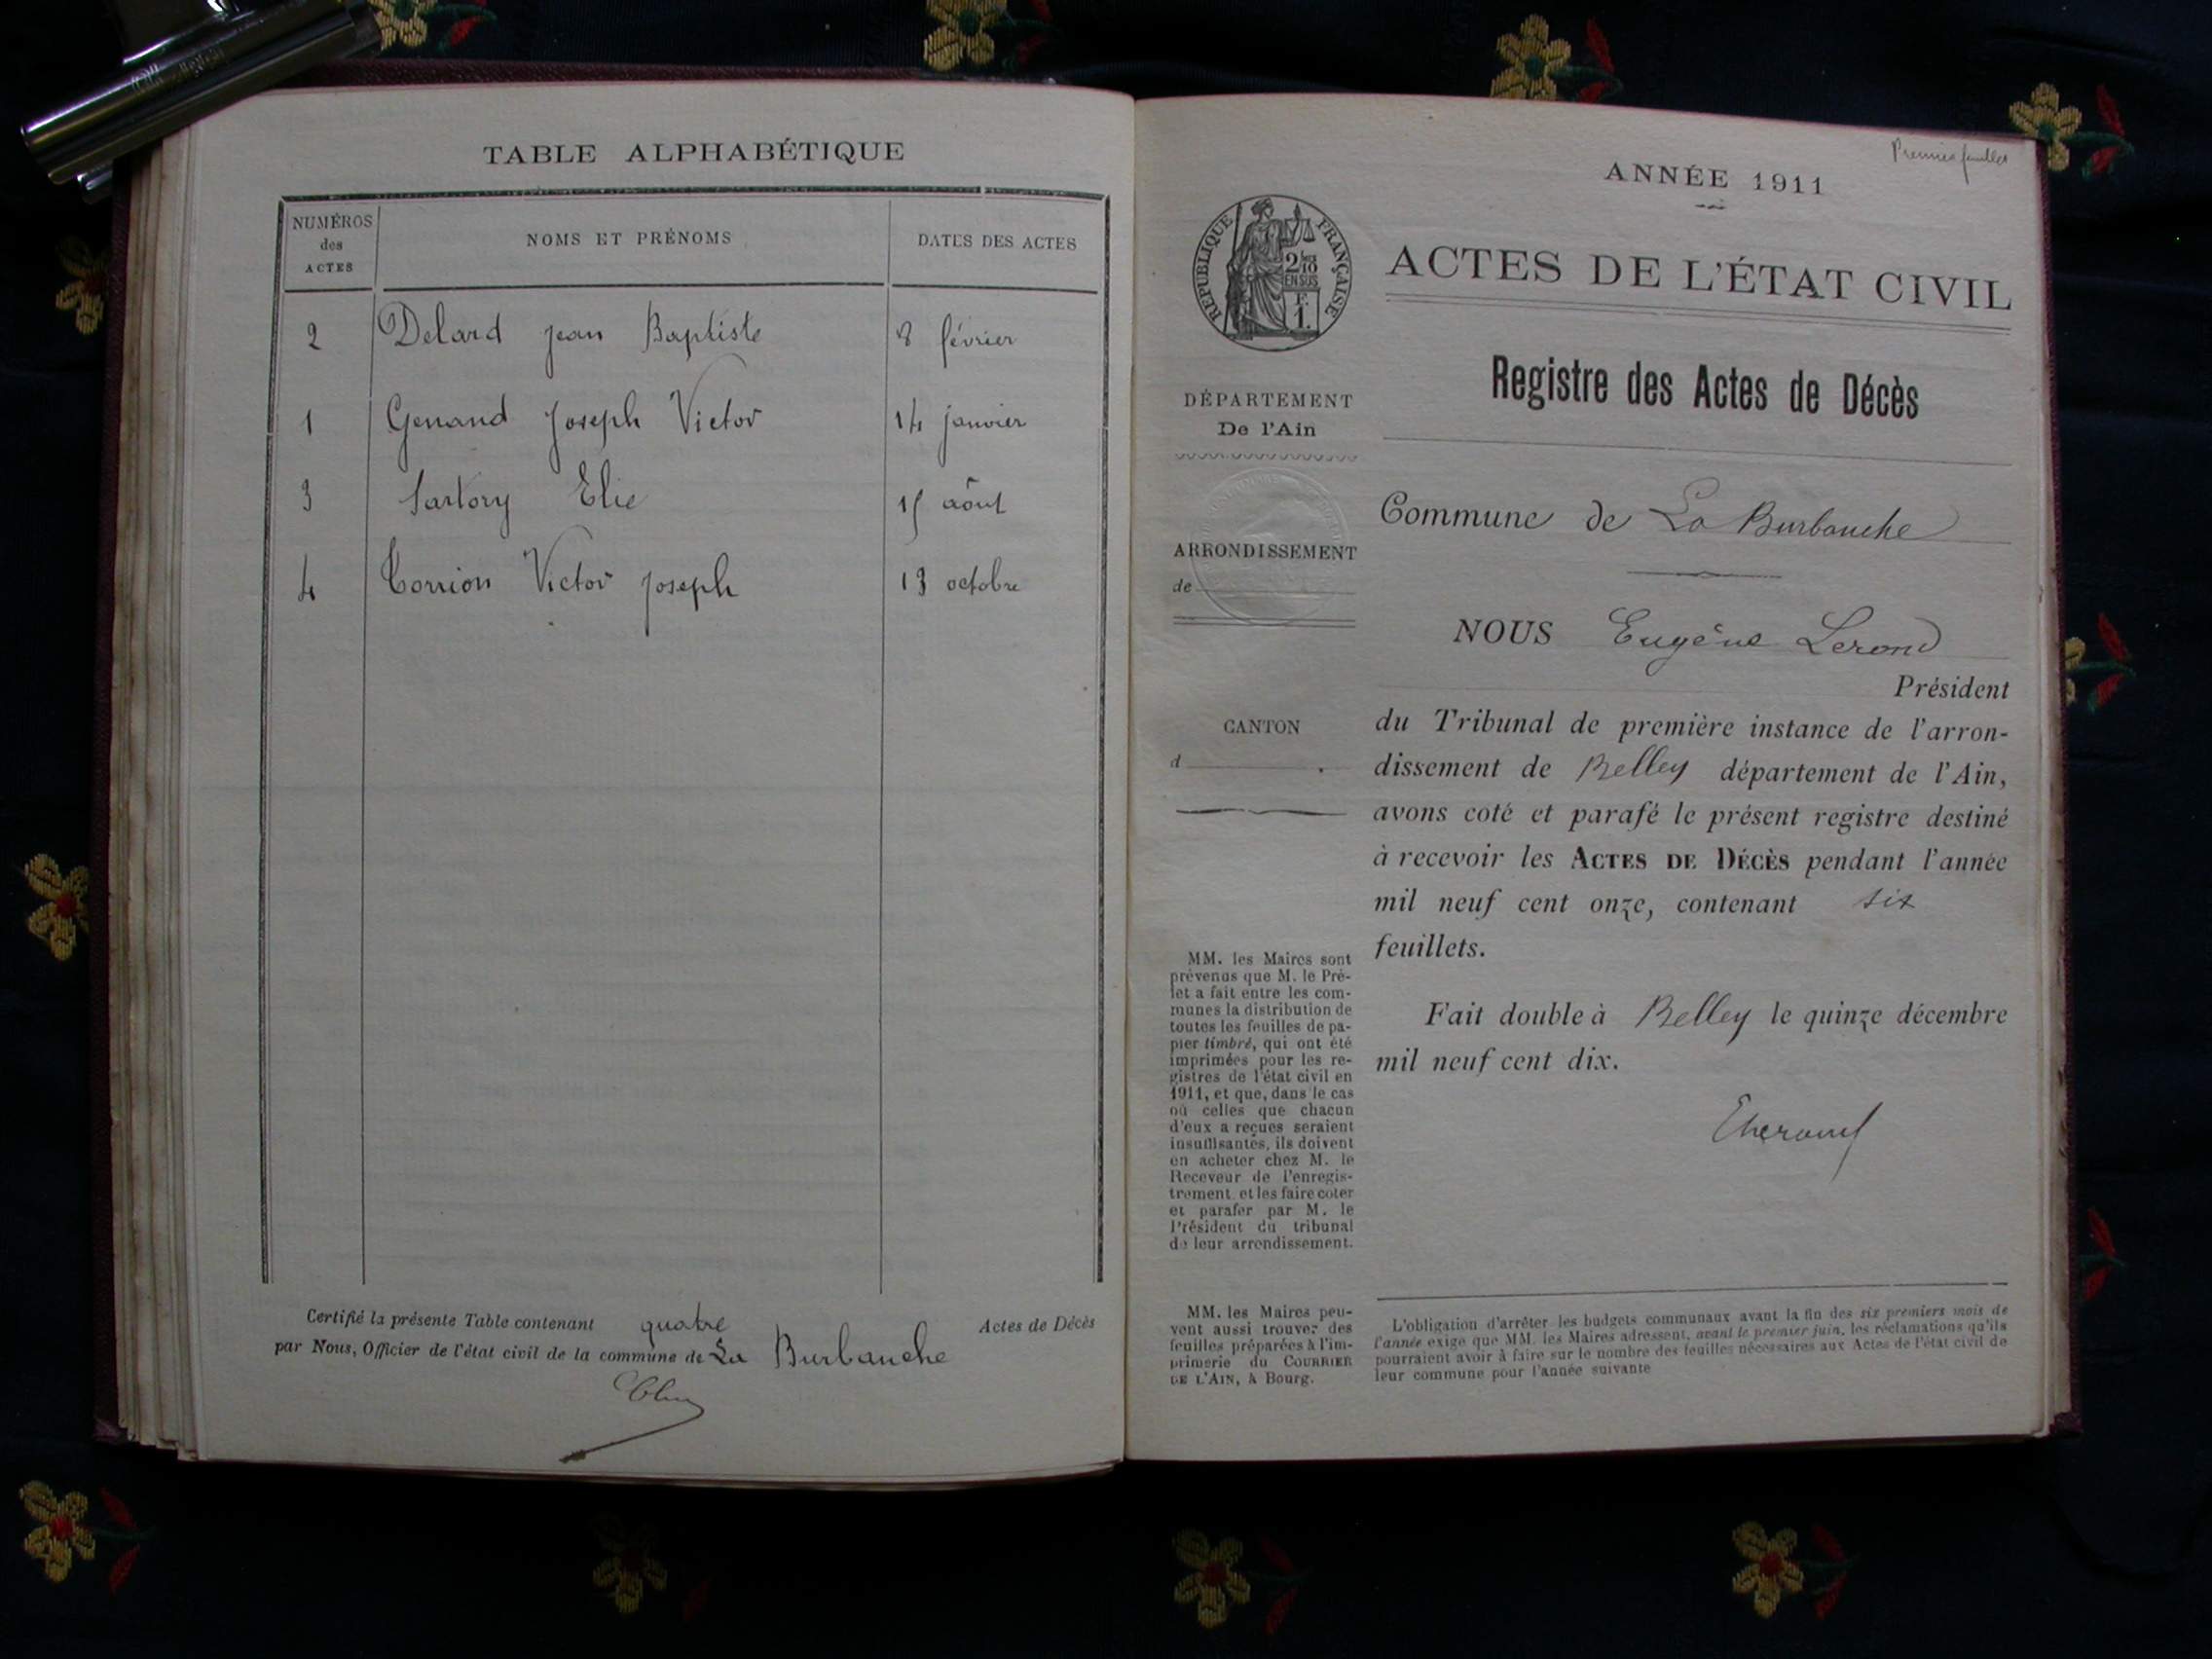 TABLE ALPHABÉTIQUE
NUMÉROS
des
ACTES
NOMS ET PRÉNOMS
DATES DES ACTES
2 Delard Jean Baptiste 8 février
1 Genand Joseph Victor 14 janvier
3 Sartory Elie 15 août
4 Torrion Victor Joseph 13 octobre
Certifié la présente Table contenant quatre Actes de Décès
par Nous, Officier de l'état civil de la commune de La Burbanche
Premier feuillet
ANNÉE 1911
RÉPUBLIQUE FRANÇAISE
2/10
EN SUS
F.
1.
ACTES DE L'ÉTAT CIVIL
Registre des Actes de Décès
DÉPARTEMENT
De l'Ain
ARRONDISSEMENT
de
CANTON
d
MM. les Maires sont
prévenus que M. le Pré-
fet a fait entre les com-
munes la distribution de
toutes les feuilles de pa-
pier timbré, qui ont été
imprimées pour les re-
gistres de l'état civil en
1911, et que, dans le cas
où celles que chacun
d'eux a reçues seraient
insuffisantes, ils doivent
en acheter chez M. le
Receveur de l'enregis-
trement et les faire coter
et parafer par M. le
Président du tribunal
de leur arrondissement.
MM. les Maires peu-
vent aussi trouver des
feuilles préparées à l'im-
primerie du COURRIER
DE L'AIN, à Bourg.
Commune de La Burbanche
NOUS Eugène Lerond
Président
du Tribunal de première instance de l'arron-
dissement de Belley département de l'Ain,
avons coté et parafé le présent registre destiné
à recevoir les ACTES DE DÉCÈS pendant l'année
mil neuf cent onze, contenant six
feuillets.
Fait double à Belley le quinze décembre
mil neuf cent dix.
L'obligation d'arrêter les budgets communaux avant la fin des six premiers mois de
l'année exige que MM. les Maires adressent, avant le premier juin, les réclamations qu'ils
pourraient avoir à faire sur le nombre des feuilles nécessaires aux Actes de l'état civil de
leur commune pour l'année suivante